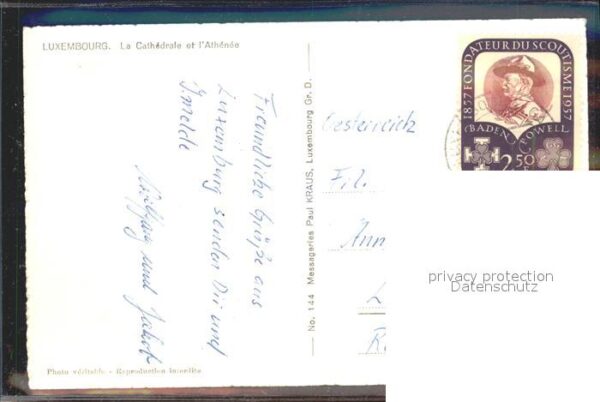 LUXEMBOURG. La Cathédrale et l'Athénée
Freundliche Grüße aus
Luxemburg senden Dir und
Imelde
Wolfgang und Jakob
No. 144 - Messageries Paul KRAUS, Luxembourg Gr. D.
Photo véritable - Reproduction interdite
1857 FONDATEUR DU SCOUTISME 1957
BADEN POWELL
2.50
Oesterreich
Frl.
Ann
L
R
privacy protection
Datenschutz